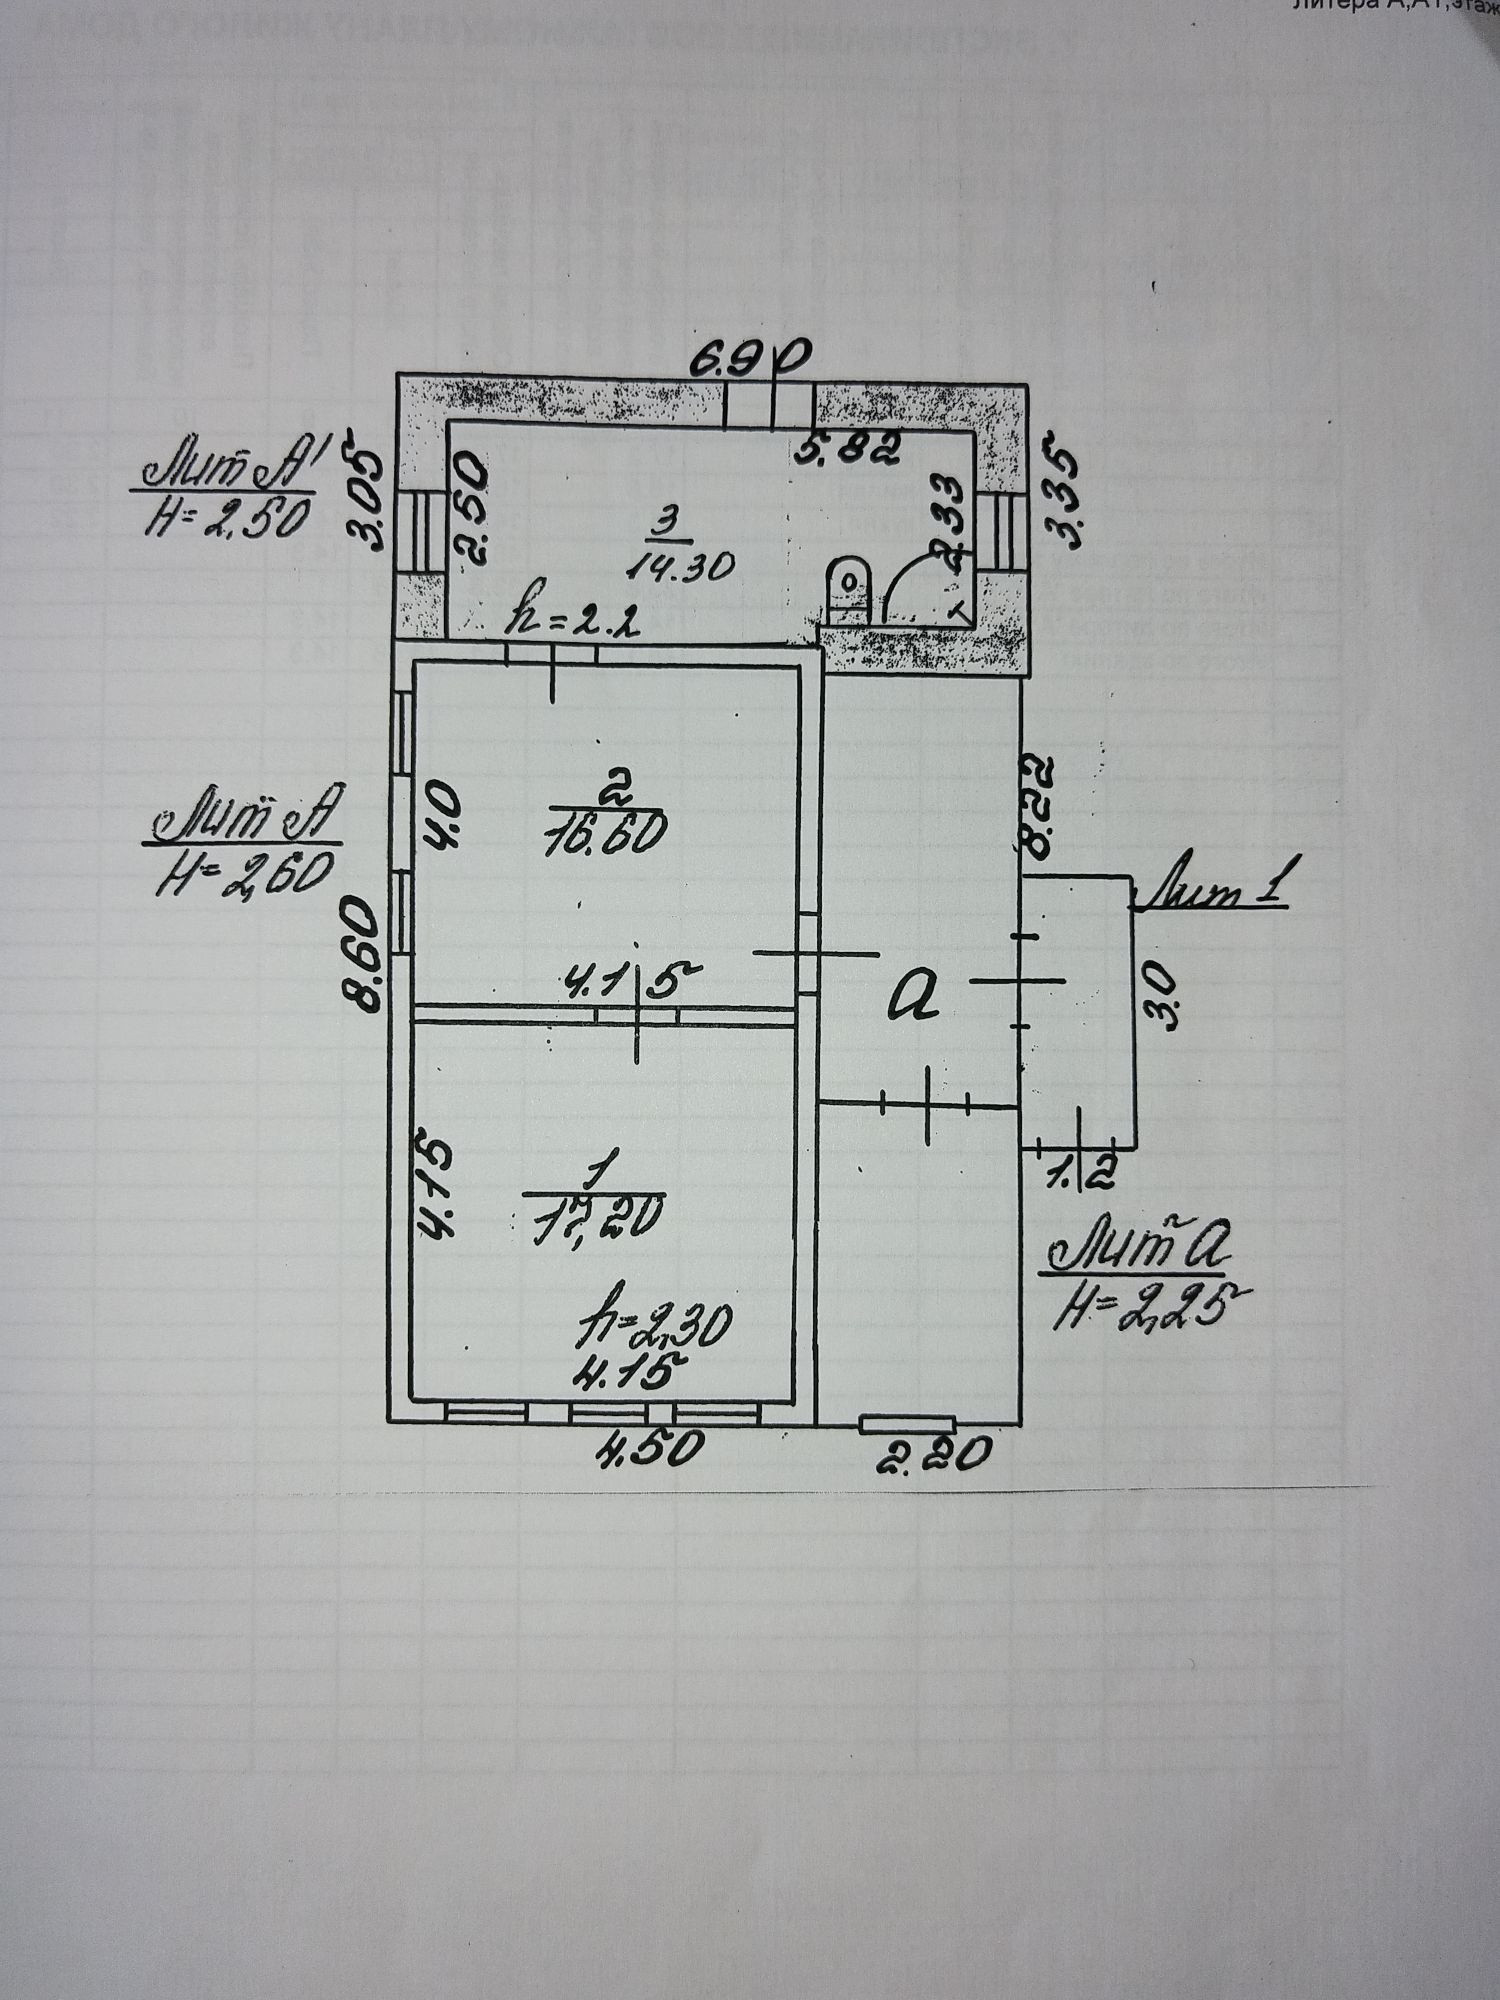 Литера А,А1,этаж
6.90
5.82
Лит А'
Н=2.50
3.05
2.50
3
14.30
2.33
3.35
h=2.2
Лит А
Н=2,60
8.60
4.0
2
16.60
4.15
8.22
Лит 1
а
3.0
1.2
4.15
1
17,20
h=2,30
4.15
4.50
2.20
Лит а
Н=2,25